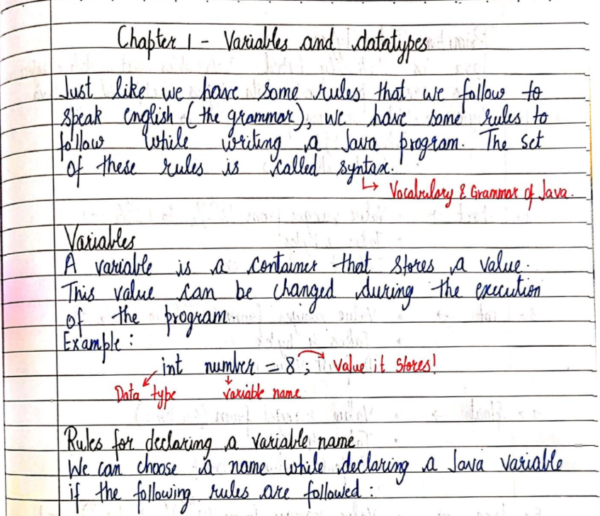 Chapter 1 - Variables and datatypes
Just like we have some rules that we follow to
speak english (the grammar), we have some rules to
follow while writing a Java program. The set
of these rules is called syntax.
↳ Vocabulary & Grammar of Java.
Variables
A variable is a container that stores a value.
This value can be changed during the execution
of the program.
Example :
int number = 8 ; → Value it stores!
Data type variable name
Rules for declaring a variable name
We can choose a name while declaring a Java variable
if the following rules are followed :